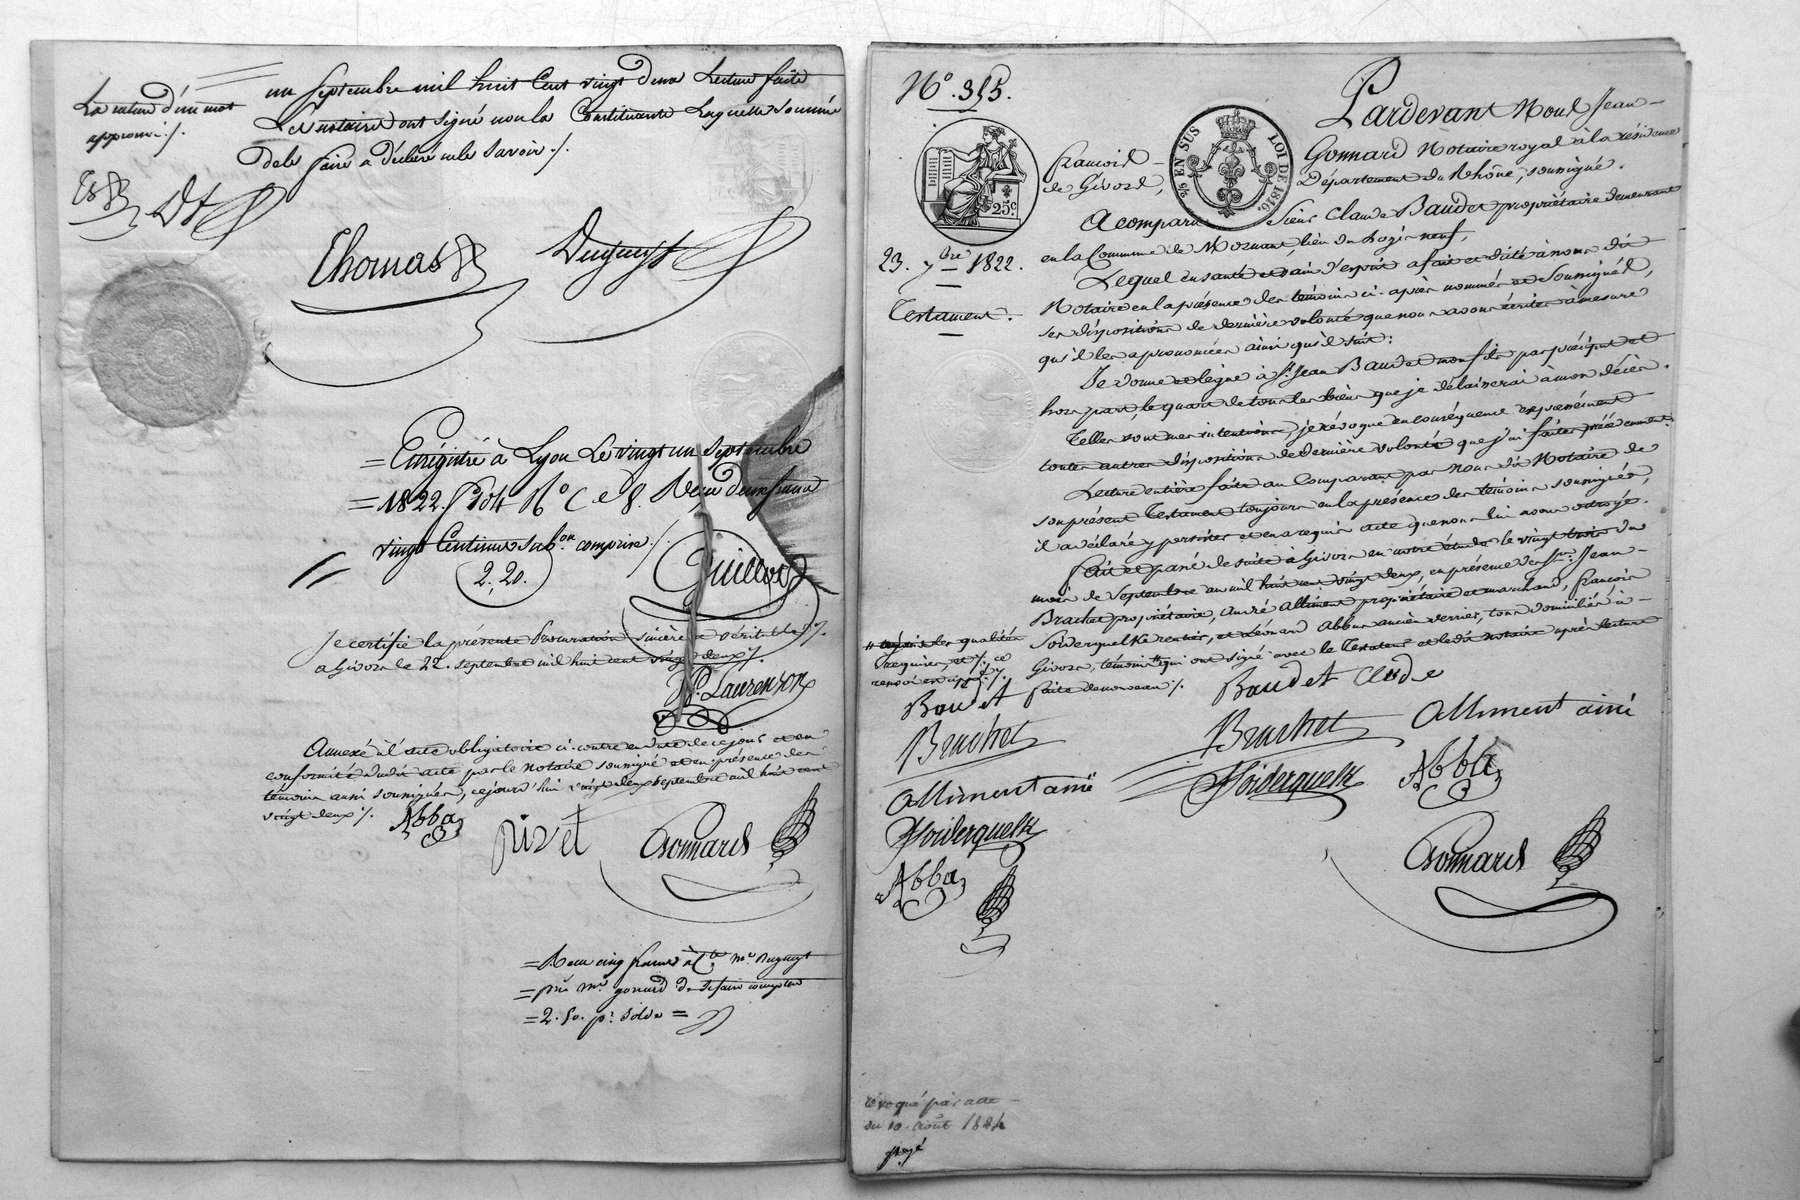 un Septembre mil huit Cent vingt deux Lecture faite
Les notaires ont signé non la Constituante Laquelle sommée
de le faire a déclaré ne le savoir ./.
La rature d'un mot
approuvée ./.
Thomas
Dugueyt
= Enrégistré à Lyon Le vingt un septembre
= 1822. f° 104 R° C e 8. Reçu deux francs
vingt Centimes subon comprise ./.
2,20.
Guillot
Je certifie la présente Procuration sincère et véritable ./.
a Givors le 22. septembre mil huit cent vingt deux ./.
Laurenson
Annexé à l'acte obligatoire ci-contre en date de ce jour et en
conformité dudit acte par le Notaire soussigné et en présence des
témoins aussi soussignés, ce jourd'hui vingt deux septembre mil huit cent
vingt deux ./.
Abba
Rivet
Gonnard
= Reçu cinq francs
= 2. 50. pr. solde =
N° 355.
Pardevant Nous Jean-
françois Gonnard Notaire royal à la résidence
de Givors, Département du Rhône, soussigné.
25c
2/5 EN SUS LOI DE 1816.
A comparu Sieur Claude Baudet propriétaire demeurant
en la Commune de Mornant, lieu du Logis neuf,
23. 7bre 1822.
Testament.
Lequel en santé et sain d'esprit a fait et dicté à nous dit
Notaire en la présence des témoins ci-après nommés et Soussignés,
ses dispositions de dernière volonté que nous avons écrites à mesure
qu'il les a prononcées ainsi qu'il suit:
Je donne et lègue à Sr. Jean Baudet mon fils par préciput et
hors part, le quart de tous les biens que je délaisserai à mon décès.
Telles sont mes intentions, je révoque en conséquence expressément
toutes autres dispositions de dernière volonté que j'ai faites précédemment.
Lecture entière faite au Comparant par Nous dit Notaire de
son présent Testament toujours en la présence des témoins soussignés,
il a déclaré y persister et en a requis acte que nous lui avons octroyé.
fait et passé de suite à Givors en notre étude le vingt trois du
mois de Septembre an mil huit cent vingt deux, en présence de Srs. Jean-
Brachet propriétaire, André Alliment propriétaire et marchand, françois
Soiderquelk rentier, et Léonard Abba ancien verrier, tous domiciliés à-
Givors, témoins " qui ont signé avec le Testateur et le dit notaire après lecture
faite de nouveau ./.
" les qualités
requises, et ./. ce
renvoi est app.vé ./.
Baudet
Baudet Clode
Brachet
Brachet
Alliment ainé
Alliment ainé
Soiderquelk
Soiderquelk
Abba
Abba
Gonnard
Révoqué par acte
du 10. Août 1824